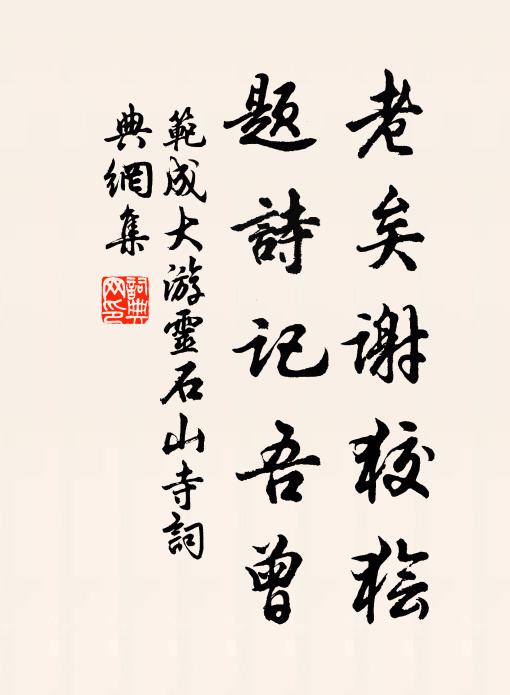 老矣谢狡狯
题詩记吾曾
範成大游靈石山寺詞
典網集
詞典网印